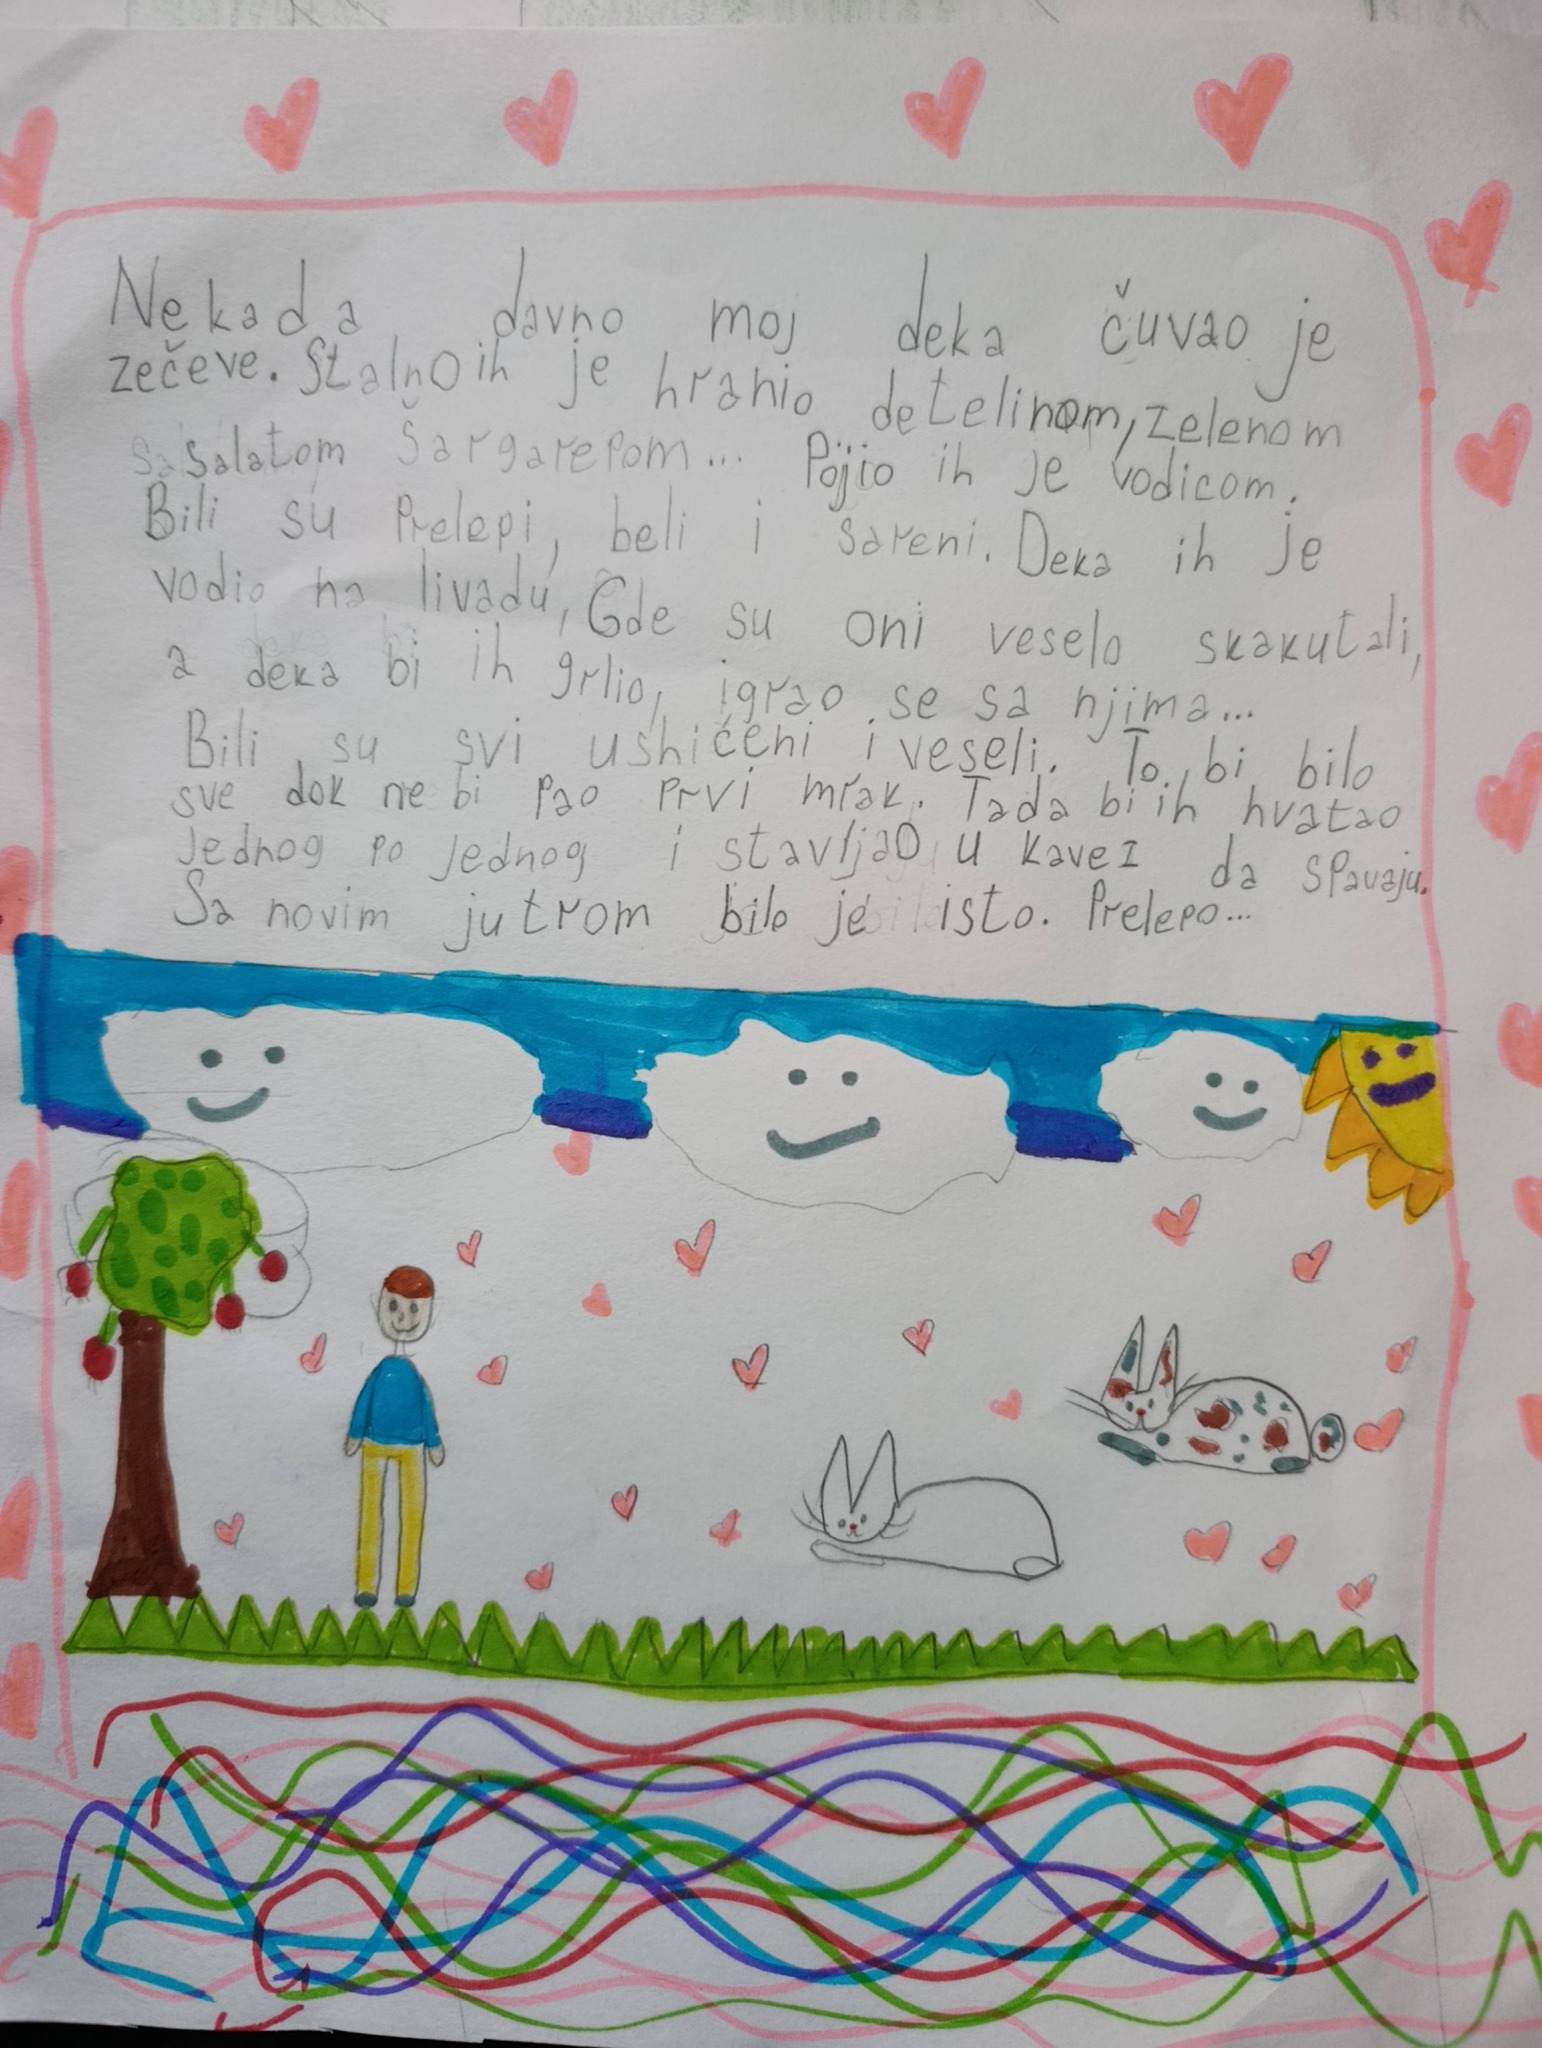 Nekada davno moj deka čuvao je
zečeve. Stalno ih je hranio detelinom, zelenom
salatom šargarepom... Pojio ih je vodicom.
Bili su Prelepi, beli i sareni. Deka ih je
vodio na livadu, Gde su oni veselo skakutali,
a deka bi ih grlio, igrao se sa njima...
Bili su svi ushićeni i veseli. To bi bilo
sve dok ne bi pao prvi mrak. Tada bi ih hvatao
Jednog po jednog i stavljao u kavez da spavaju.
Sa novim jutrom bilo je isto. Prelepo...